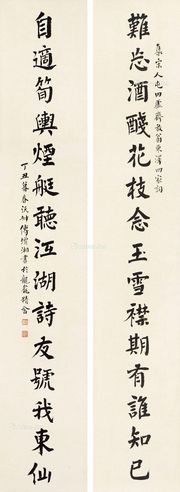 集宋人屯田虛齋放翁東澤四家詞
難忘酒醆花枝念玉雪襟期有誰知己
自適筍輿煙艇聽江湖詩友號我東仙
丁丑暮春沅叔傅增湘書於龍龕精舍